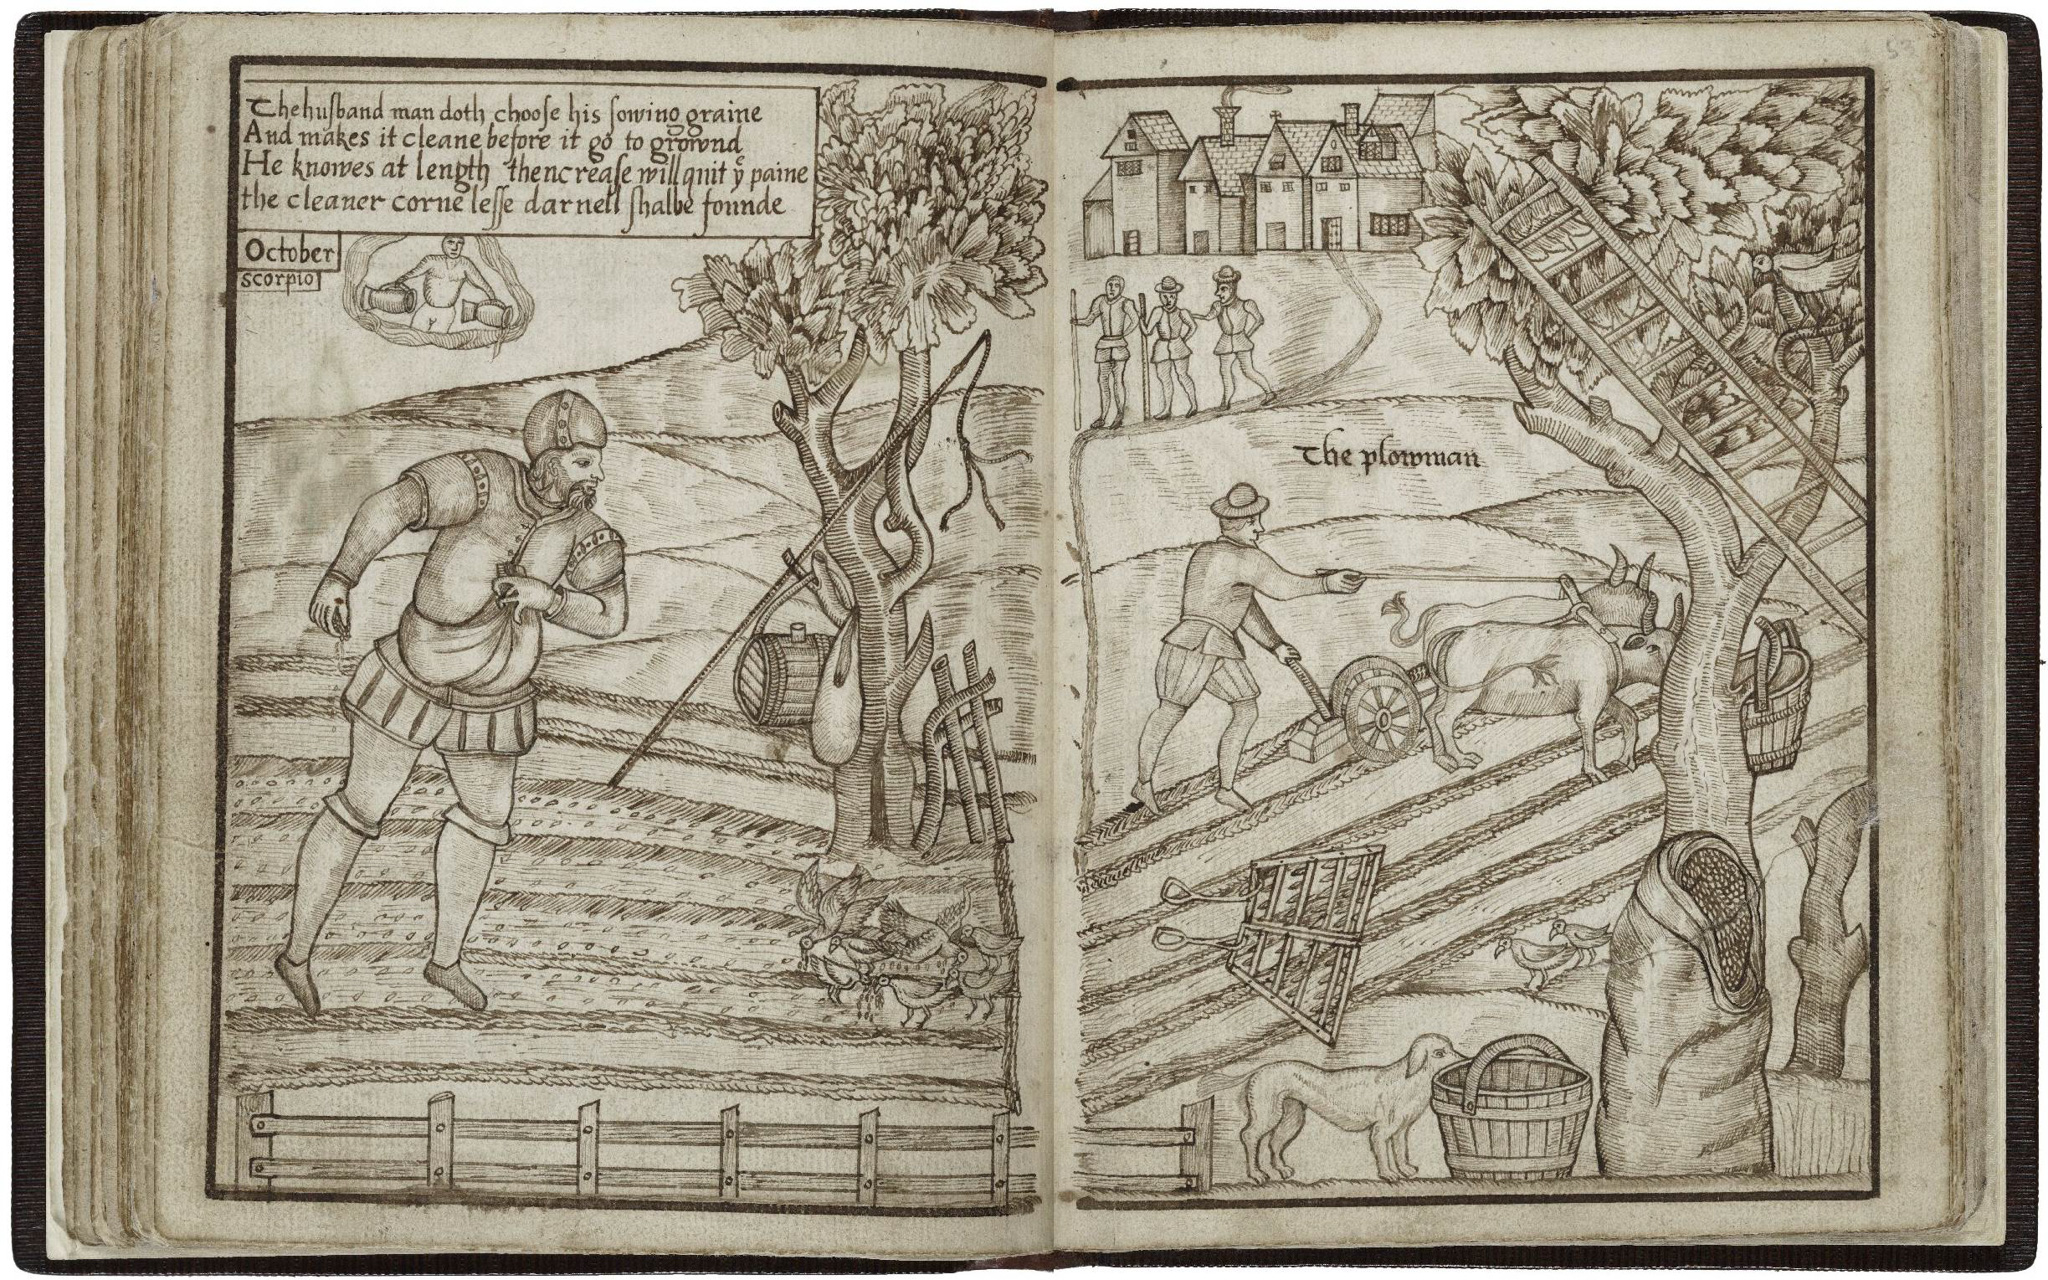 The husband man doth choose his sowing graine
And makes it cleane before it go to grownd
He knowes at length thencrease will quit yͤ paine
the cleaner corne lesse darnell shalbe founde
October
scorpio
53
The plowman